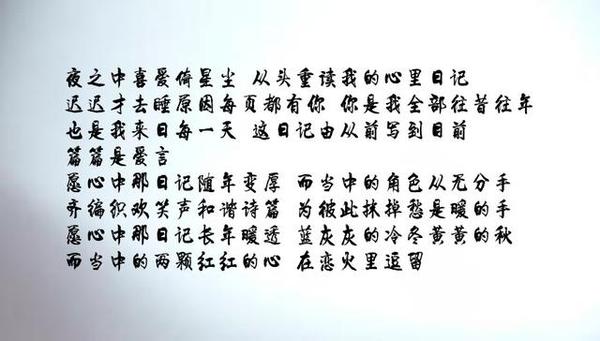 夜之中喜爱倚星尘 从头重读我的心里日记
迟迟才去睡原因每页都有你 你是我全部往昔往年
也是我来日每一天 这日记由从前写到目前
篇篇是爱言
愿心中那日记随年变厚 而当中的角色从无分手
齐编织欢笑声和谐诗篇 为彼此抹掉愁是暖的手
愿心中那日记长年暖透 蓝灰灰的冷冬黄黄的秋
而当中的两颗红红的心 在恋火里逗留